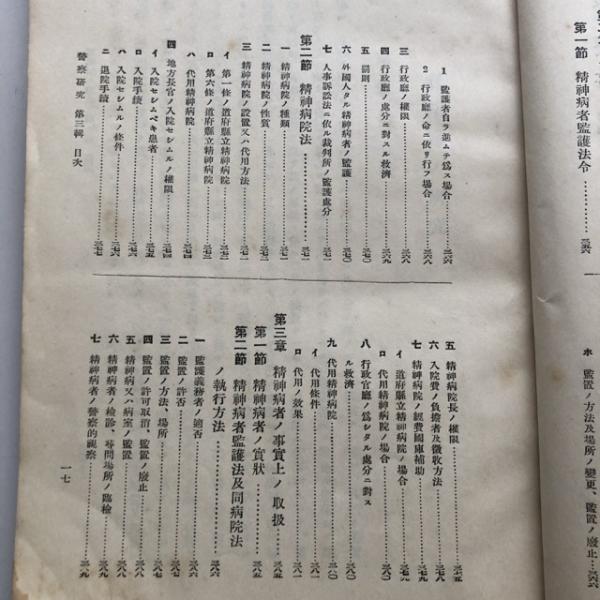 第一節 精神病者監護法令……三六六
ホ 監置ノ方法及場所ノ變更、監置ノ廢止…三六六
1 監護者自ラ進ムテ爲ス場合……三六六
2 行政廳ノ命ニ依リ行フ場合……三六八
三 行政廳ノ權限……三六八
四 行政廳ノ處分ニ對スル救濟……三六九
五 罰則……三七〇
六 外國人タル精神病者ノ監護……三七〇
七 人事訴訟法ニ依ル裁判所ノ監護處分……三七〇
第二節 精神病院法……三七一
一 精神病院ノ種類……三七一
二 精神病院ノ性質……三七一
三 精神病院ノ設置又ハ代用方法……三七一
イ 第一條ノ道府縣立精神病院……三七二
ロ 第六條ノ道府縣立精神病院……三七三
ハ 代用精神病院……三七三
四 地方長官ノ入院セシムルノ權限……三七四
イ 入院セシムベキ患者……三七五
ロ 入院手續……三七六
ハ 入院セシムルノ條件……三七六
ニ 退院手續……三七七
警察研究 第三輯 目次
五 精神病院長ノ權限……三七五
六 入院費ノ負擔者及徵收方法……三七八
七 精神病院ノ經費國庫補助……三七九
イ 道府縣立精神病院ノ場合……三七九
ロ 代用精神病院ノ場合……三八〇
八 行政官廳ノ爲シタル處分ニ對ス
ル救濟……三八〇
九 代用精神病院……三八〇
イ 代用條件……三八一
ロ 代用ノ效果……三八一
第三章 精神病者ノ事實上ノ取扱……三八五
第一節 精神病者ノ實狀……三八五
第二節 精神病者監護法及同病院法
ノ執行方法……三八六
一 監護義務者ノ適否……三八六
二 監置ノ許否……三八六
三 監置ノ方法、場所……三八七
四 監置ノ許可取消、監置ノ廢止……三八八
五 精神病又ハ病室ノ監置……三八八
六 精神病者ノ檢診、尋問場所ノ臨檢……三八九
七 精神病者ノ警察的視察……三八九
一七